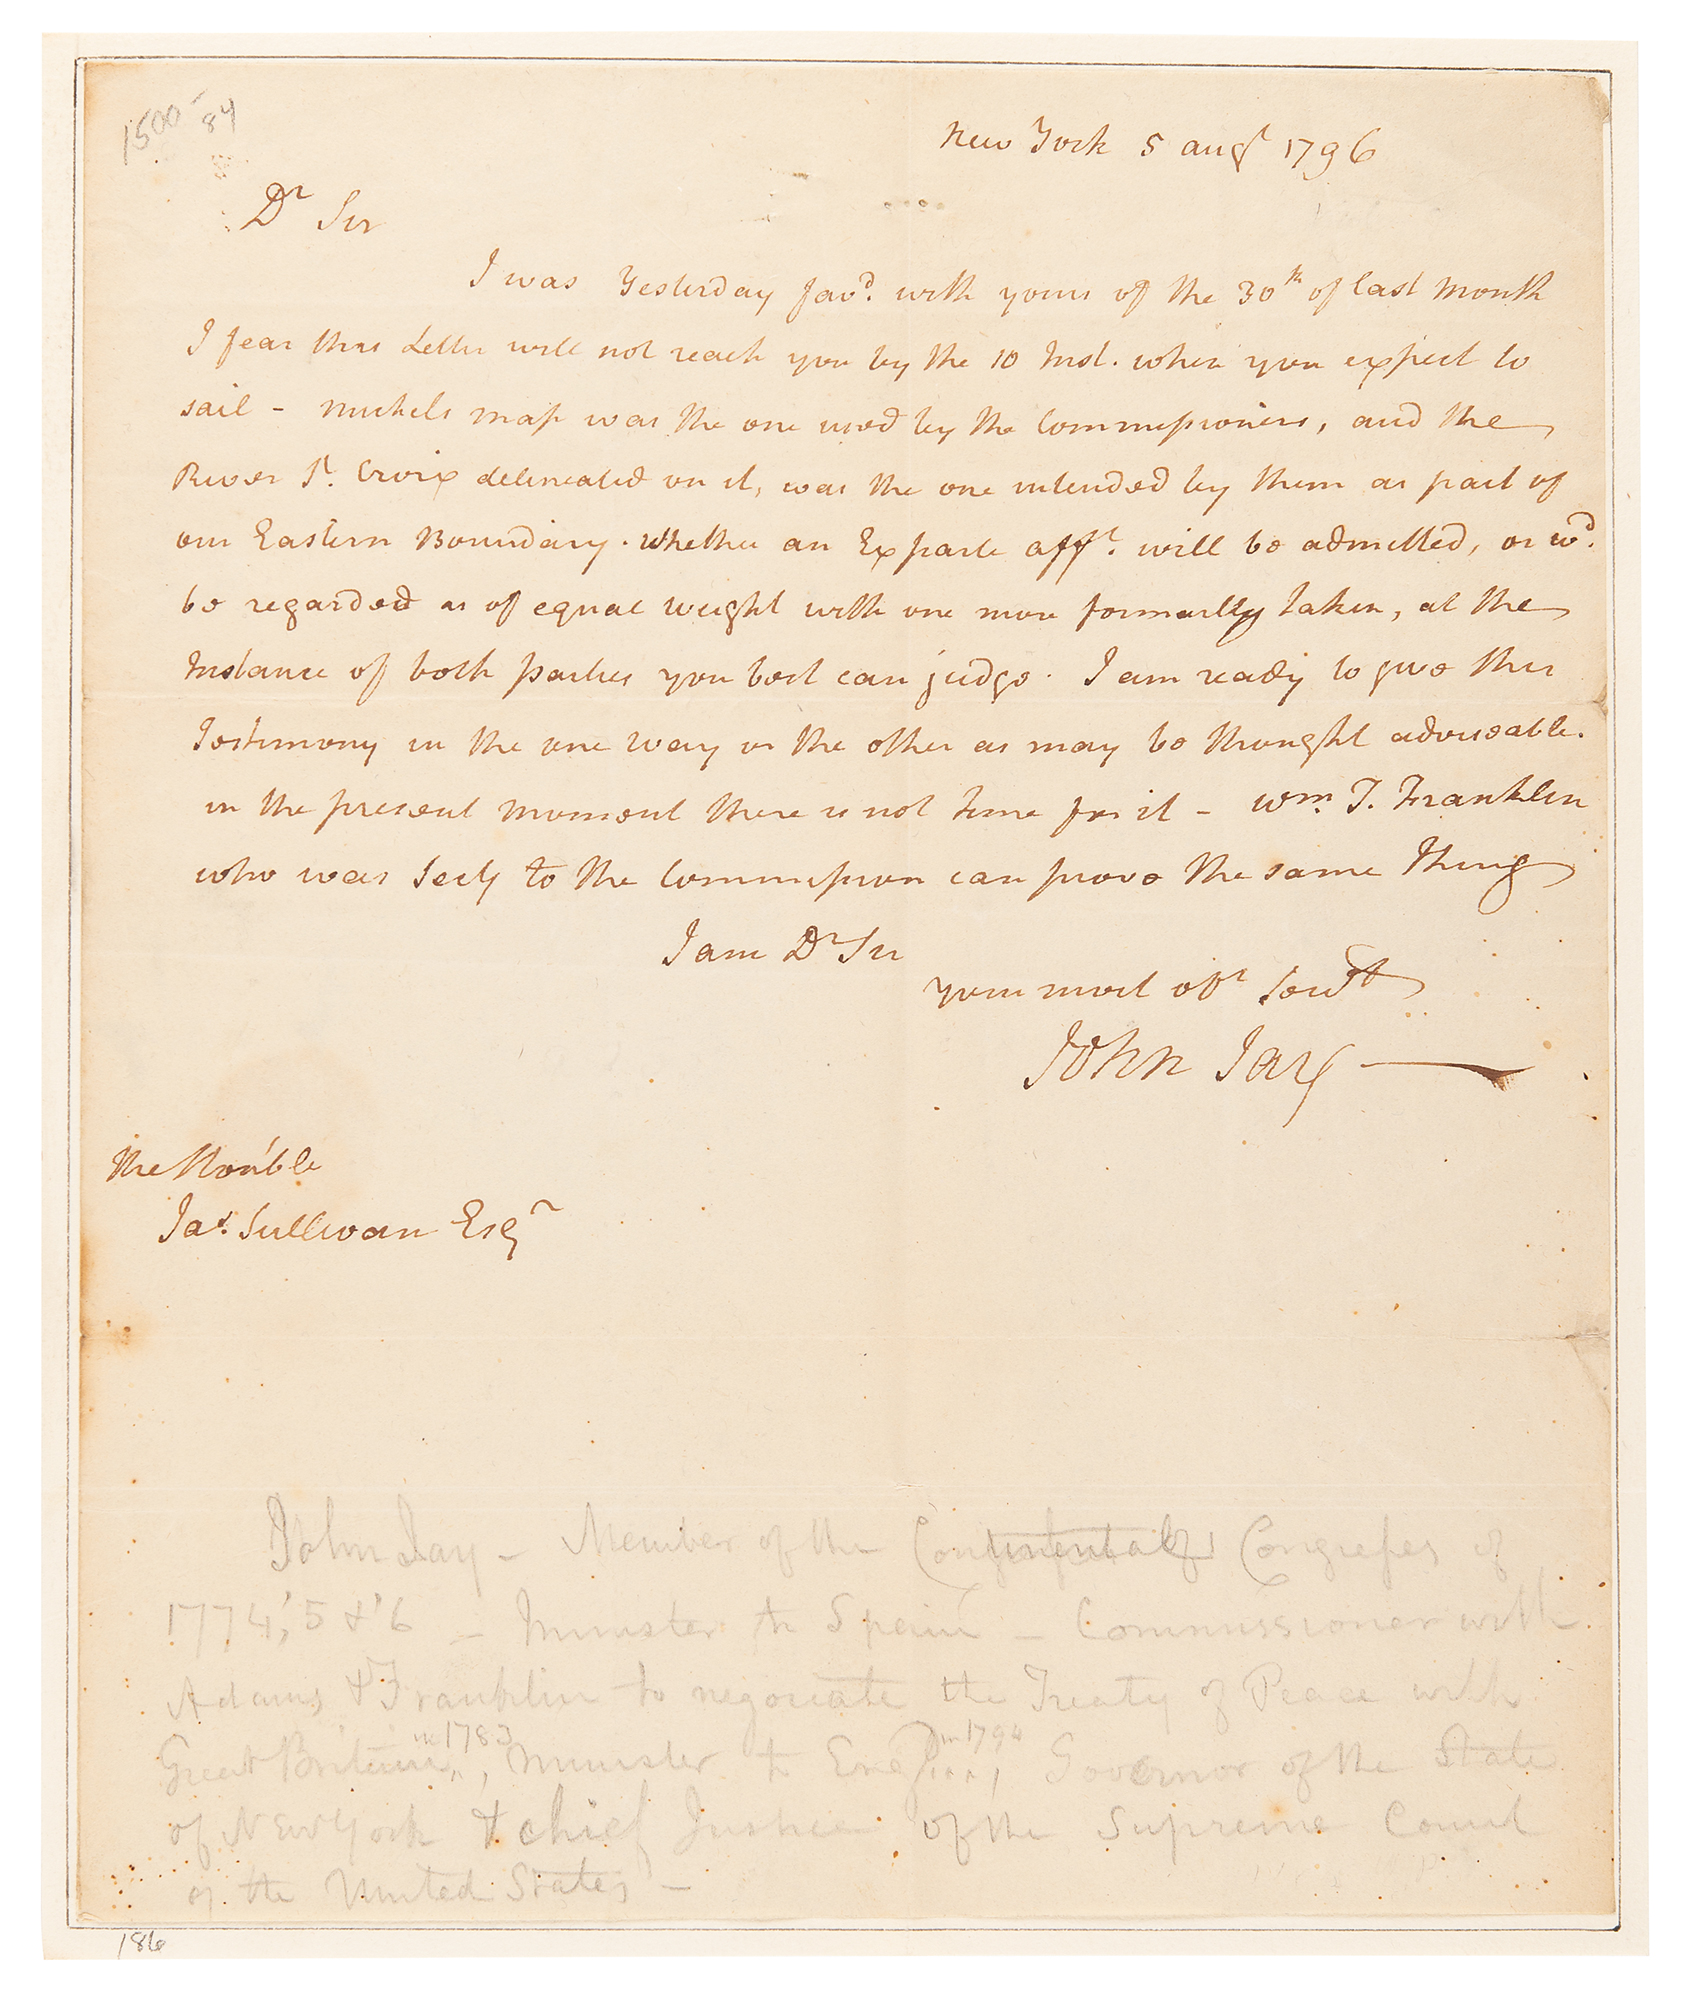 1500- 84
New York 5 augt 1796
Dr Sir
I was Yesterday favd. with yours of the 30th of last month
I fear this Letter will not reach you by the 10 Inst. when you expect to
sail - Mitchels map was the one used by the Commissioners, and the
River St. Croix delineated on it, was the one intended by them as part of
our Eastern Boundary. Whether an Ex parte afft. will be admitted, or wd.
be regarded as of equal weight with one more formally taken, at the
Instance of both parties you best can judge. I am ready to give this
Testimony in the one way or the other as may be thought adviseable.
in the present moment there is not time for it - Wm. T. Franklin
who was Secy to the Commission can prove the same Thing
I am Dr Sir
your most obt Servt
John Jay
The Hon'ble
Jas. Sullivan Esqr
John Jay - Member of the Continental Congresses of
1774,' 5 & '6 - Minister to Spain - Commissioner with
Adams & Franklin to negociate the Treaty of Peace with
Great Britain in 1783, Minister to England in 1794, Governor of the State
of New York & chief Justice of the Supreme Court
of the United States -
186